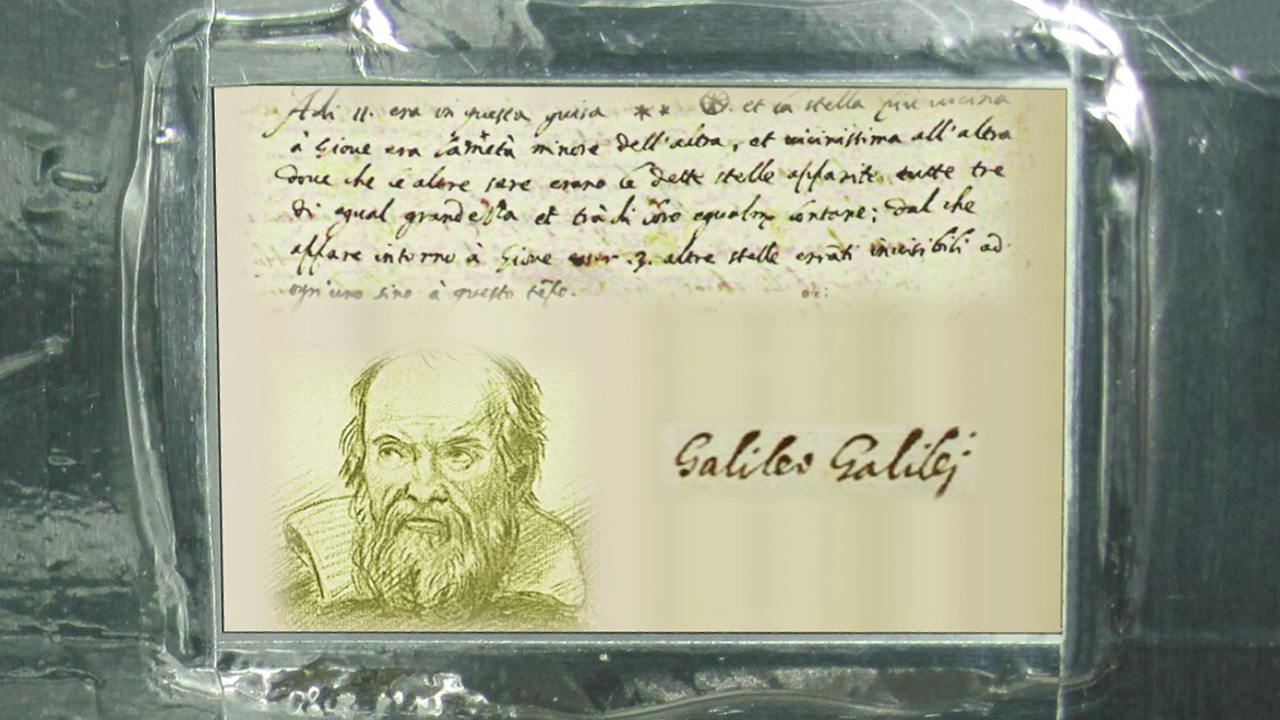 Adi 11. era in questa guisa ** et la stella più vicina
à Giove era la metà minore dell'altra, et vicinissima all'altra
dove che le altre sere erano le dette stelle apparite tutte tre
di egual grandezza et trà di loro egualm. lontane; dal che
appare intorno à Giove esser .3. altre stelle errãti invisibili ad
ogn'uno sino à questo tẽpo.
Galileo Galilej